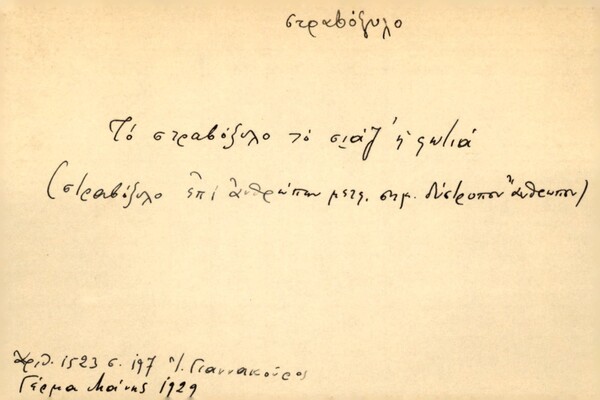 στραβόξυλο
Τό στραβόξυλο τό σι̯άζ' ἡ φωτιά
(στραβόξυλο ἐπί ἀνθρώπων μετφ. σημ. δύστροπον ἄνθρωπον)
Ἀριθ. 1523 σ. 197 Ἰ. Γιαννακοῦρος
Γέρμα Μάνης 1929